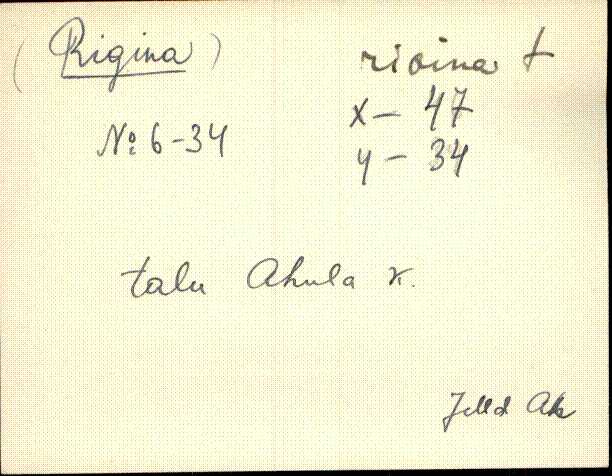 (Rigina) rioina t
x – 47
№ 6-34
y – 34
talu Ahula k.
Jõed Ak